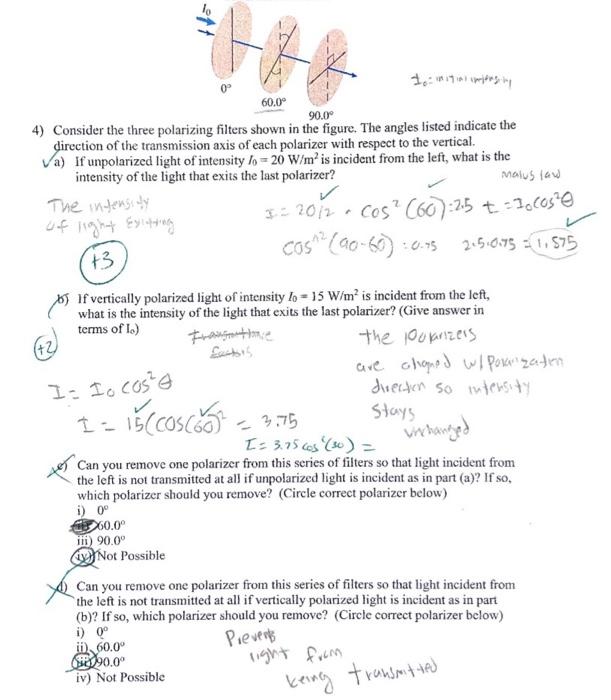 I₀
0°
60.0°
90.0°
I₀ = initial intensity
4) Consider the three polarizing filters shown in the figure. The angles listed indicate the
direction of the transmission axis of each polarizer with respect to the vertical.
a) If unpolarized light of intensity I₀ = 20 W/m² is incident from the left, what is the
intensity of the light that exits the last polarizer?
Malus law
The intensity
of light exitting
I = 20/2 • cos² (60) = 2.5
I = I₀cos²θ
cos^2 (90-60) = 0.75
2.5•0.75 = 1.875
+3
b) If vertically polarized light of intensity I₀ = 15 W/m² is incident from the left,
what is the intensity of the light that exits the last polarizer? (Give answer in
terms of I₀)
+2
the polarizers
are aligned w/ polarization
direction so intensity
stays
unchanged
I = I₀ cos²θ
I = 15(cos(60)² = 3.75
I = 3.75 cos²(30) =
c) Can you remove one polarizer from this series of filters so that light incident from
the left is not transmitted at all if unpolarized light is incident as in part (a)? If so,
which polarizer should you remove? (Circle correct polarizer below)
i) 0°
ii) 60.0°
iii) 90.0°
iv) Not Possible
d) Can you remove one polarizer from this series of filters so that light incident from
the left is not transmitted at all if vertically polarized light is incident as in part
(b)? If so, which polarizer should you remove? (Circle correct polarizer below)
i) 0°
ii) 60.0°
iii) 90.0°
iv) Not Possible
Prevents
light from
being transmitted